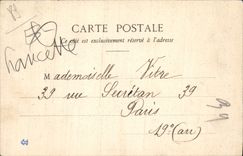 CARTE POSTALE
Ce côté est exclusivement réservé à l'adresse
Francette
Mademoiselle Vitre
39 rue Secrétan 39
Paris
19e (arr)